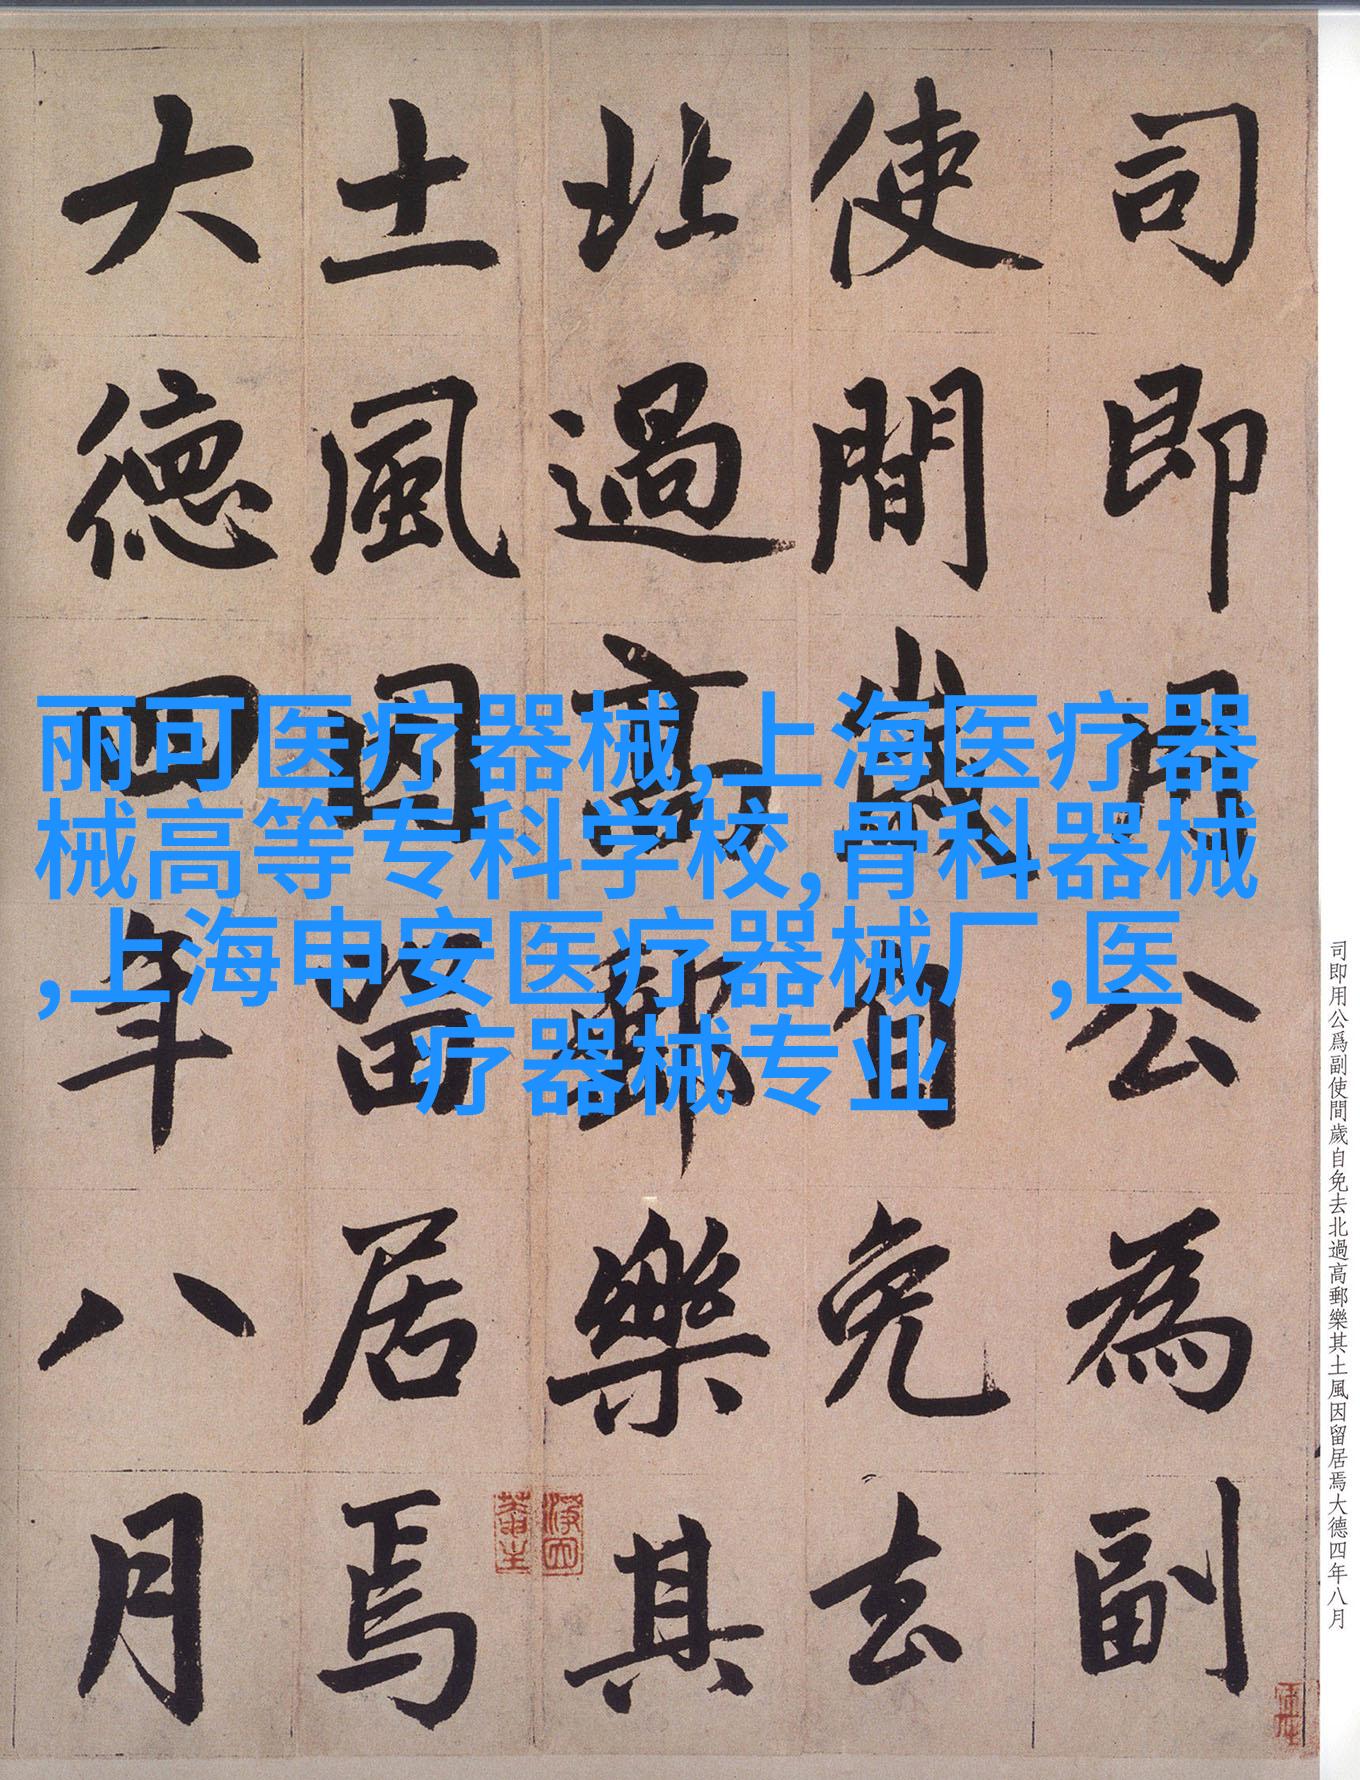 司即用公為副
使間歲自免去
北過高郵樂其
土風因留居焉
大德四年八月
丽可医疗器械,上海医疗器
械高等专科学校,骨科器械
,上海申安医疗器械厂,医
疗器械专业
司即用公爲副使間歲自免去北過高郵樂其土風因留居焉大德四年八月